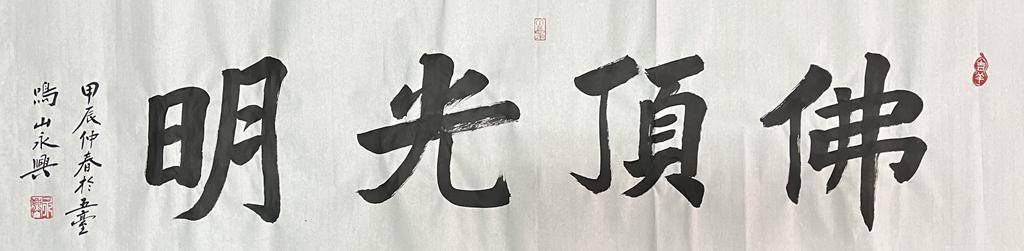 佛頂光明
甲辰仲春於五臺
鳴山永興